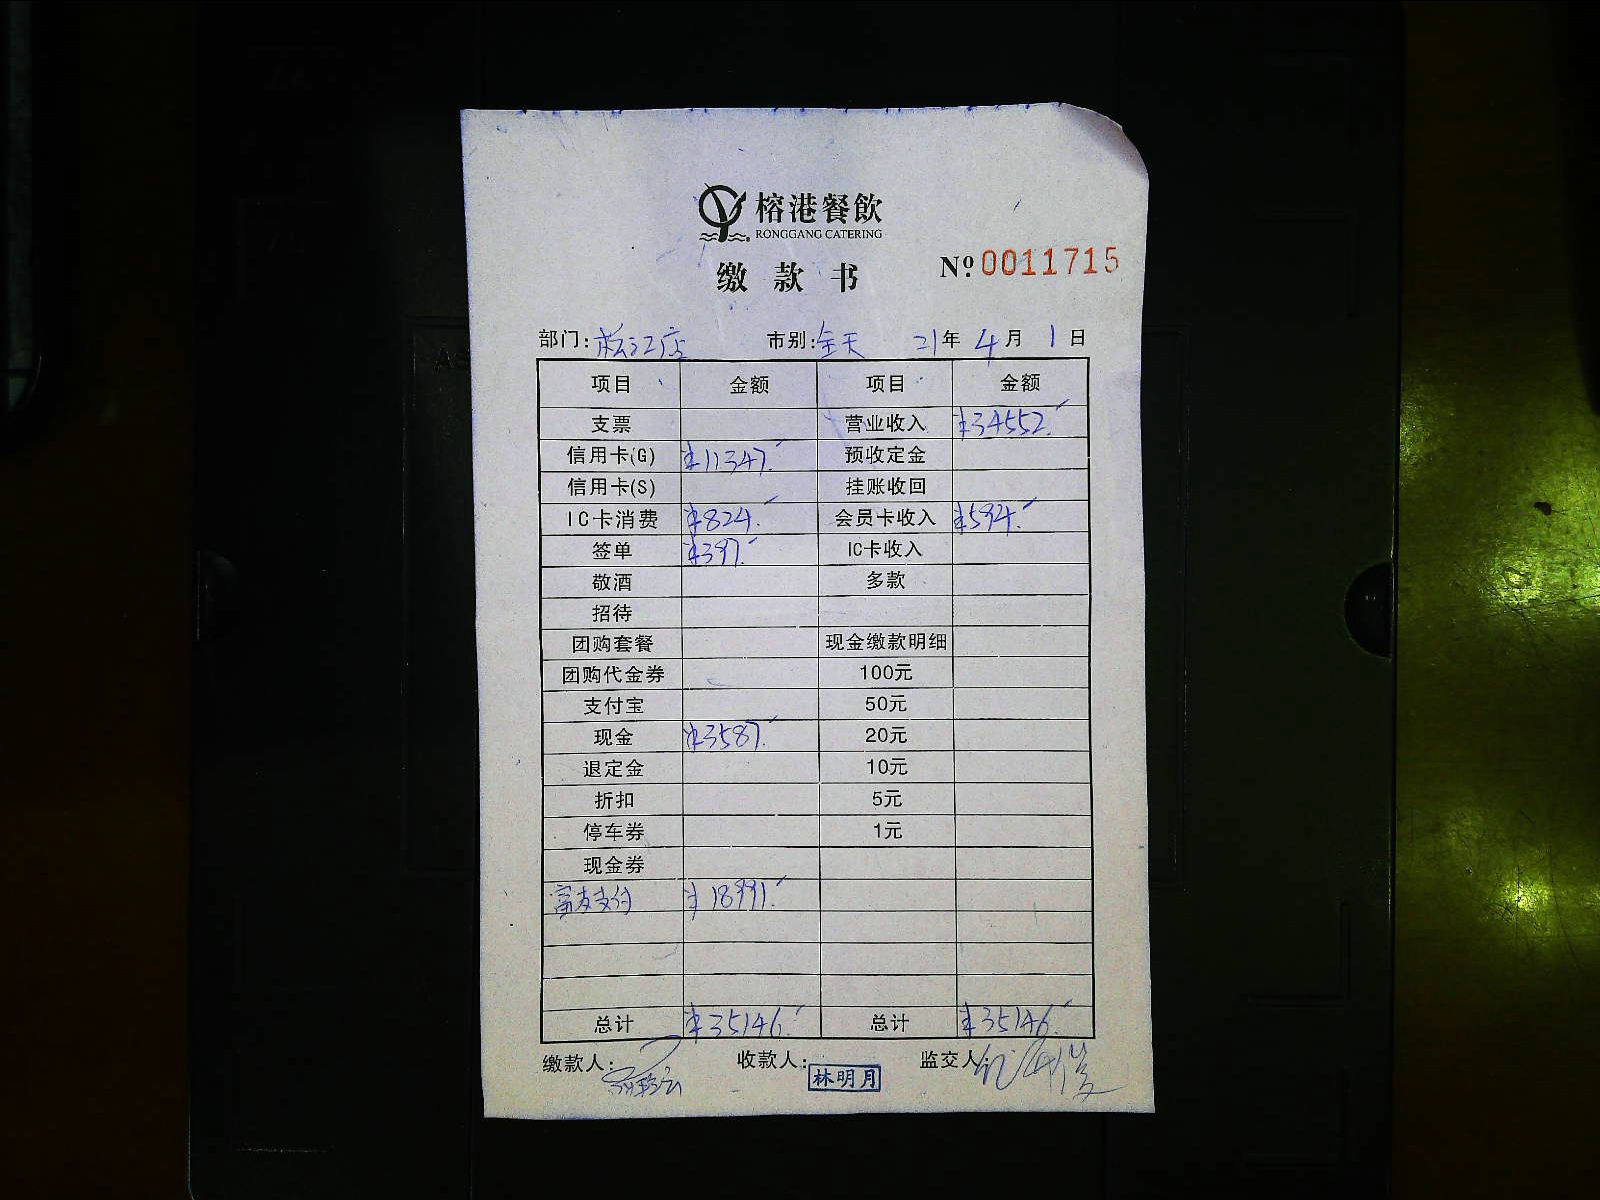 榕港餐飲
RONGGANG CATERING
缴款书 Nº 0011715
部门: 松江店 市别: 全天 21年 4月 1日
项目 金额 项目 金额
支票 营业收入 ¥34552.
信用卡(G) ¥11347. 预收定金
信用卡(S) 挂账收回
IC卡消费 ¥824. 会员卡收入 ¥594.
签单 ¥397. IC卡收入
敬酒 多款
招待
团购套餐 现金缴款明细
团购代金券 100元
支付宝 50元
现金 ¥3587. 20元
退定金 10元
折扣 5元
停车券 1元
现金券
富友支付 ¥18991.
总计 ¥35146. 总计 ¥35146.
缴款人: 收款人: 林明月 监交人: